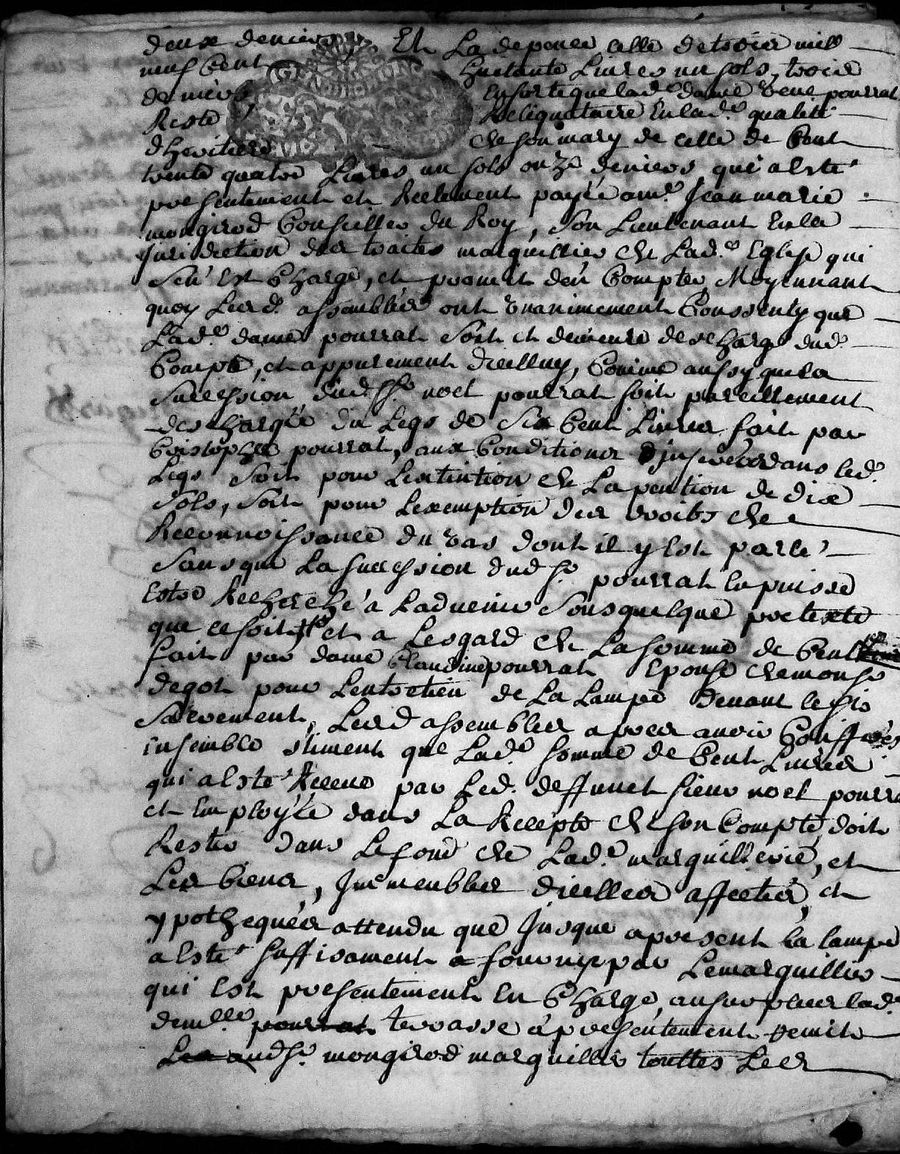 deux deniers Et La depence celle de trois mill
neuf Cent huitante Livres un sols, trois
deniers, En sorte que lad.e dame veuve pourrat
Reste Reliquataire En lad.e qualité
dheritiere de son mary de celle de Cent
trente quatre Livres un sols onze deniers, qui a esté
presentement et Reelement payée a m.e Jean marie
mongirod Conseiller du Roy, son Lieutenant En la
jurisdiction des traites marquillier de Lad.e Eglise qui
s'en Est Chargé, et promet d'en Compter, Moyennant
quoy Lesd. assemblés ont unanimement Consenty que
Lad.e dame pourrat soit et demeure deschargé dud.
Compte, et appurement d'icelluy, Comme aussy que la
succession dud. s.r noel pourrat soit pareillement
deschargée du Legs de six Cent Livres fait par
Cristophe pourrat, aux Conditions inserées dans led.
Legs soit pour Lextintion de La pention de dix
sols, soit pour Lexemption des droits de
Reconnoissance du cas dont il y Est parlé,
sans que La succession dud. s.r pourrat En puisse
Estre Recherché a Ladvenir sous quelque pretexte
que ce soit, et a Lesgard de La somme de Cent
fait par dame Claudine pourrat Epouse de mons.r
degot pour Lentretien de La Lampe devant le s.t
sacrement, Lesd. assemblés apres avoir Conifferés
ensemble stiment que Lad.e somme de Cent Livres
qui a Esté Receue par Led. deffunct sieur noel pourrat
et Employée dans La Recepte de son Compte, doit
Rester dans Le fond de Lad.e marquillerie, et
Les biens, Immeubles d'icelles affectés, et
ypothequés attendu que jusque a present la lampe
a Esté suffisament a fournye par Le marquillier
qui Est presentement En Charge, au surplus lad.e
dem.lle pourrat terrasse a presentement remit
Les aud. s.r mongirod marquillier touttes Les